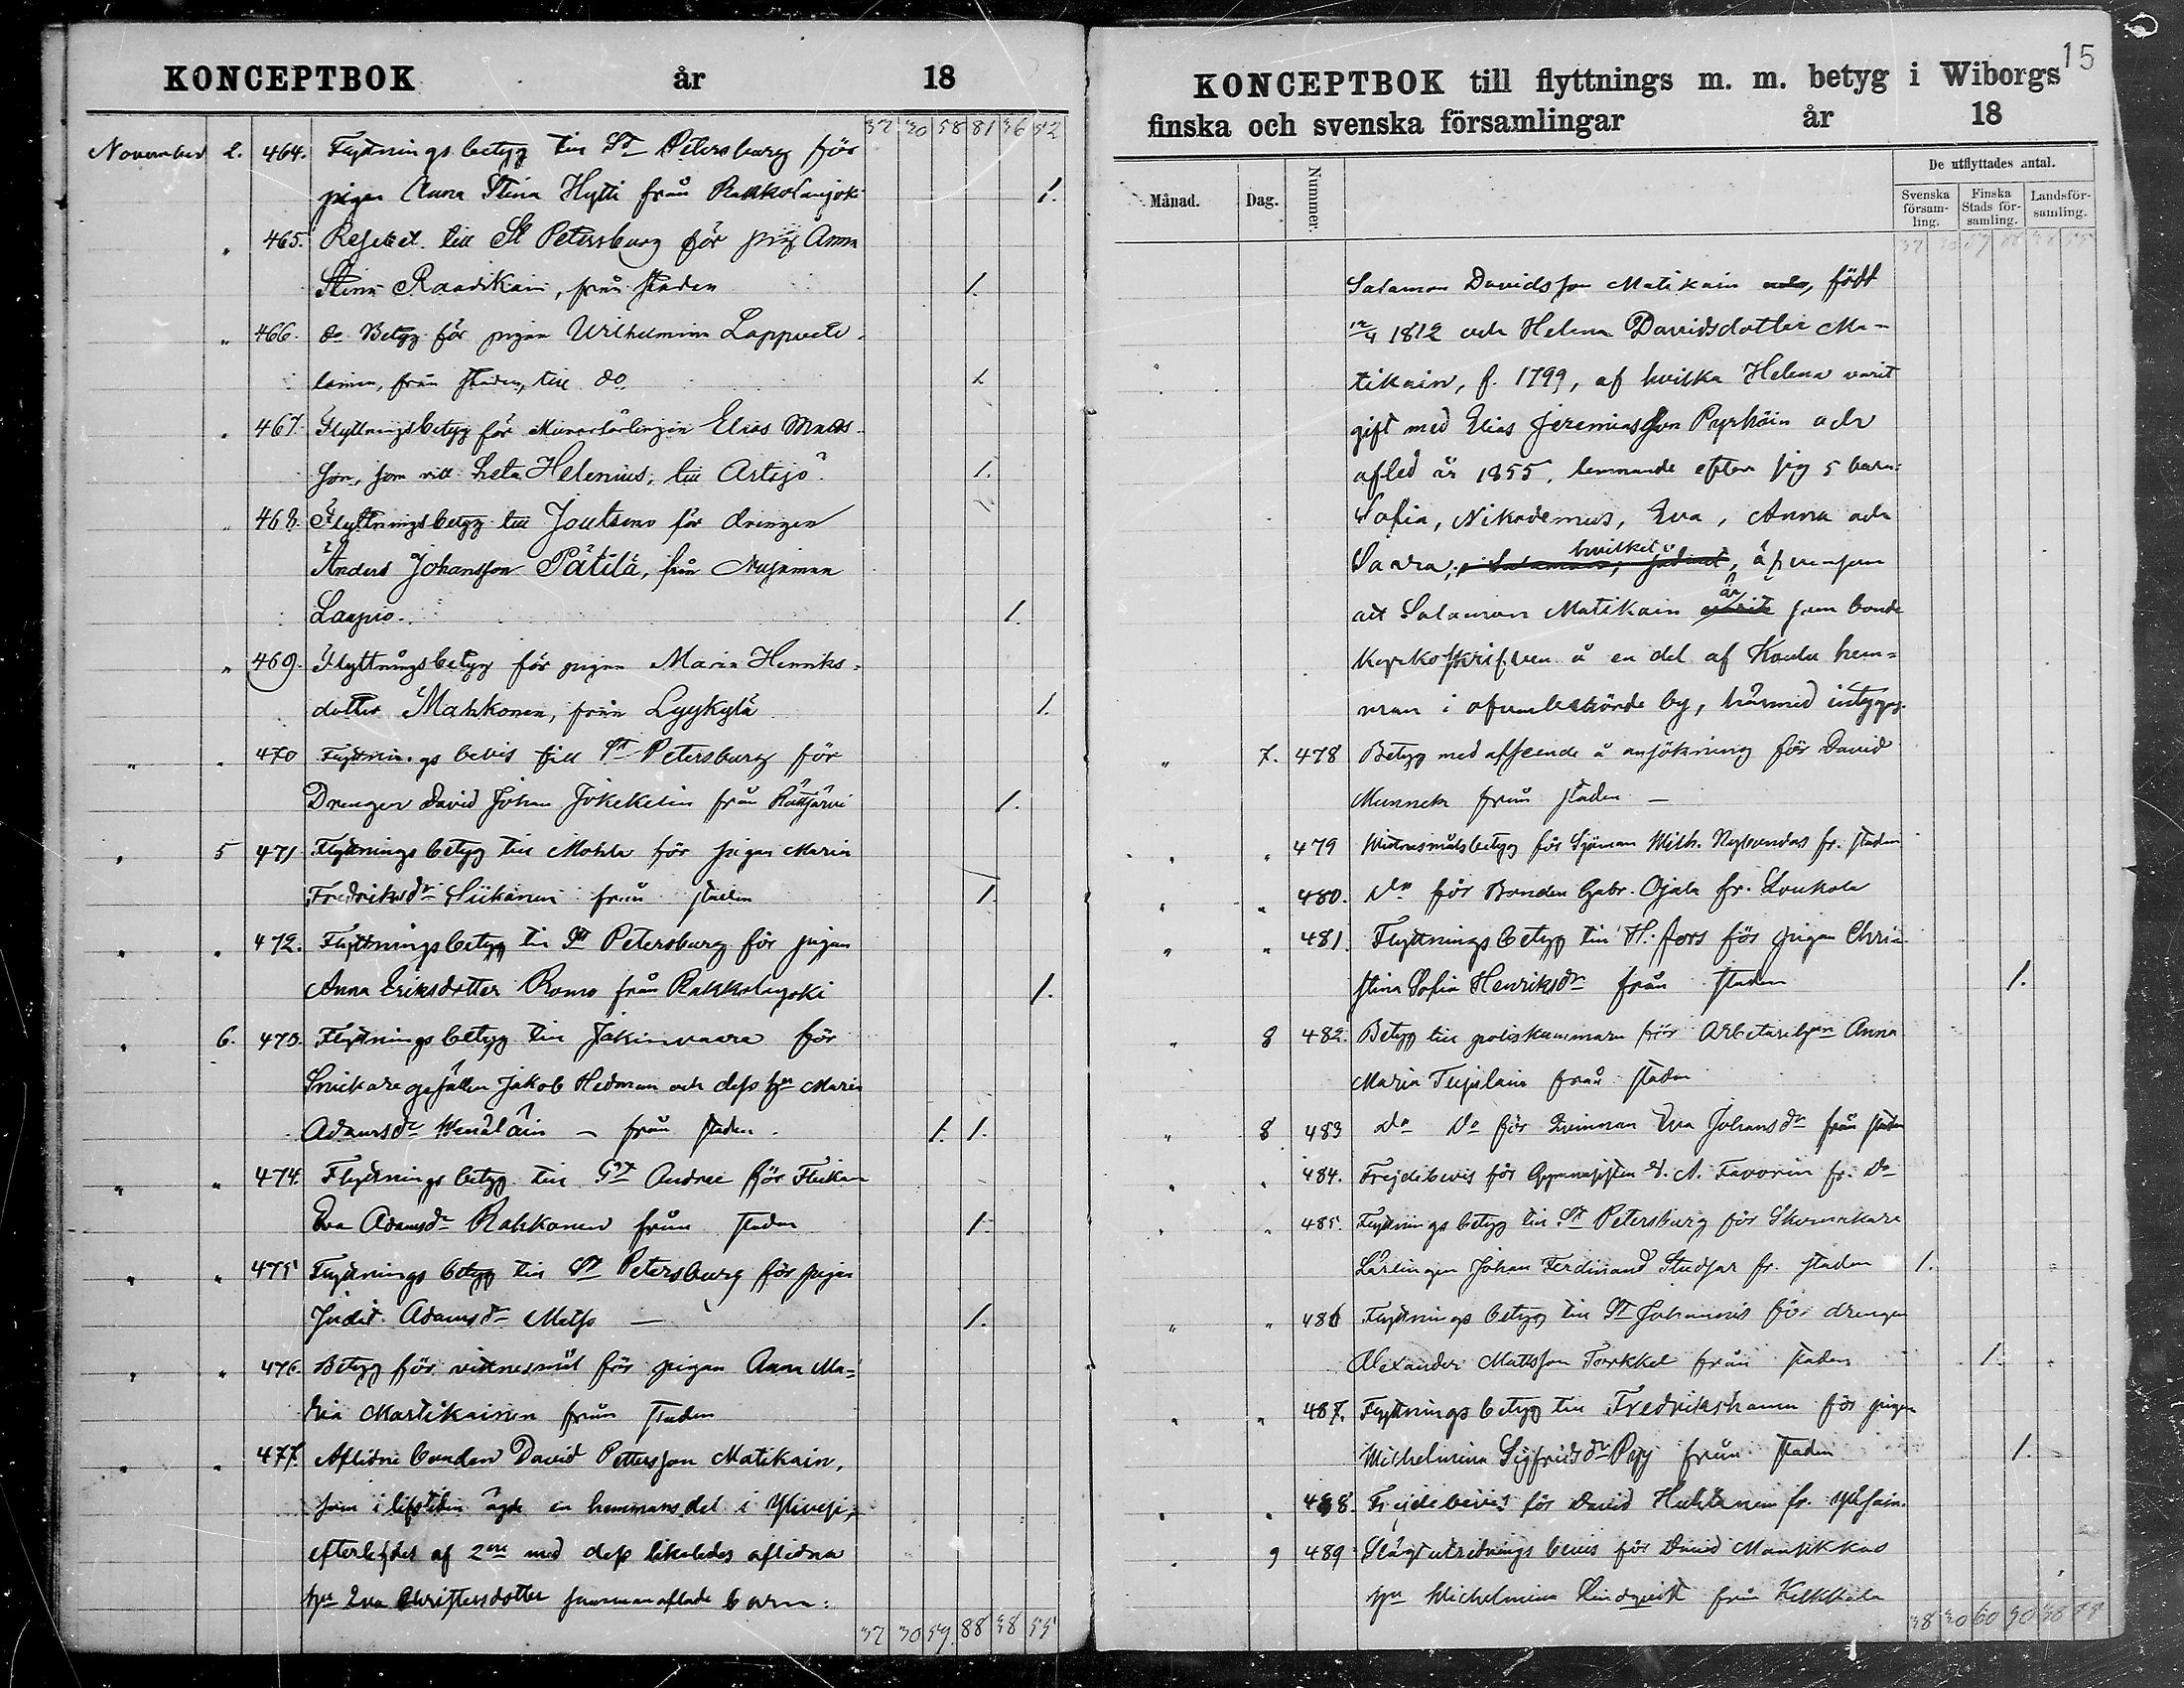 KONCEPTBOK år 18
37 30 58 81 36 52
November 2. 464. Flyttnings betyg till St Petersburg för
pigan Anna Stina Hytti från Rakkolanjok 1.
" 465. Resebet. till St Petersburg för pig. Anna
Stina Raadikain, från staden 1.
" 466. do Betyg för pigan Wilhelmina Lappvete-
lainen, från staden, till do 1.
" 467. Flyttningsbetyg för Murarlärlingen Elias Mats-
son, som vill heta Helenius, till Artsjö. 1.
" 468. Flyttningsbetyg till Joutseno för drengen
Anders Johansson Pätilä, från Nuijamaa
Laapio. 1.
" 469. Flyttningsbetyg för pigan Maria Henriks-
dotter Mahkonen, från Lyykylä 1.
" " 470 Flyttnings bevis till St Petersburg för
Drengen David Johan Jokekelin från Rättjärvi 1.
" 5 471 Flyttnings betyg till Mohla för pigan Maria
Fredriksdr Siikanen från staden 1.
" " 472. Flyttnings betyg till St Petersburg för pigan
Anna Eriksdotter Romo från Rakkolanjoki 1.
" 6. 473. Flyttnings betyg till Jakimvaara för
Snickare gesällen Jakob Hedman och dess hu Maria
Adamsdr Wenäläin – från staden. 1. 1.
" " 474. Flyttnings betyg till St Andree för Flickan
Eva Adamsdr Rahkonen från staden 1.
" " 475 Flyttnings betyg till St Petersburg för pigan
Judit Adamsdr Matso — 1.
" " 476. Betyg för vittnesmål för pigan Anna Ma-
ria Martikainen från staden
" " 477. Aflidne bonden David Pettersson Matikain,
som i lifstiden ägde en hemmansdel i Ylivesi,
efterlefdes af 2ne med dess likaledes aflidna
hu Eva Christersdotter sammanaflade barn:
37 30 59. 88 38 55
15
KONCEPTBOK till flyttnings m. m. betyg i Wiborgs
finska och svenska församlingar år 18
Månad. Dag. Nummer. De utflyttades antal.
Svenska församling. Finska Stads församling. Landsförsamling.
37 30 59 88 38 55
Salamon Davidsson Matikain och, född
12/4 1812 och Helena Davidsdotter Ma-
tikain, f. 1799, af hvilka Helena varit
gift med Elias Jeremiasson Pyrhöin och
afled år 1855, lemnande efter sig 5 barn:
Sofia, Nikodemus, Eva, Anna och
hvilket
Saara; äfvensom
är
att Salamon Matikain som bonde
kyrkoskrifven å en del af Kaulu hem-
man i ofvanberörde by, härmed intygas.
" 7. 478 Betyg med afseende å ansökning för David
Munnek från staden —
" " 479 Wittnesmålsbetyg för Sjöman Wilh. Nylandas fr. staden
" " 480. Do för Bonden Gabr. Ojala fr. Loukola
" " 481. Flyttnings betyg till H:fors för pigan Chri-
stina Sofia Henriksdr från staden 1.
" 8 482. Betyg till poliskammarn för Arbetarehun Anna
Maria Tujulain från staden
" 8 483 Do Do för Qvinnan Eva Johansdr från staden
" " 484. Frejdebevis för Gymnasisten A. A. Favorin fr. Do
" " 485. Flyttnings betyg till St Petersburg för Skomakare
Lärlingen Johan Ferdinand Studsar fr. staden 1.
" " 486 Flyttnings betyg till St Johannis för drengen
Alexander Mattsson Torkkel från staden 1.
" " 487. Flyttnings betyg till Fredrikshamn för pigan
Wilhelmina Sigfridsdr Pyy från staden 1.
" " 488. Frejdebevis för David Huhtanen fr.
" 9 489 Slägtutrednings bevis för David Mansikkas
hu Wilhelmina Lindqvist från Kilkkala
38 30 60 90 38 55